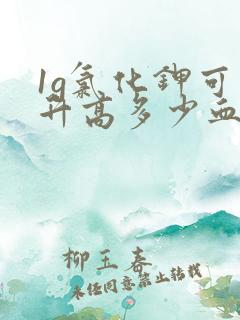 1g氯化钾可
升高多少血
柳玉春
未经同意禁止转载